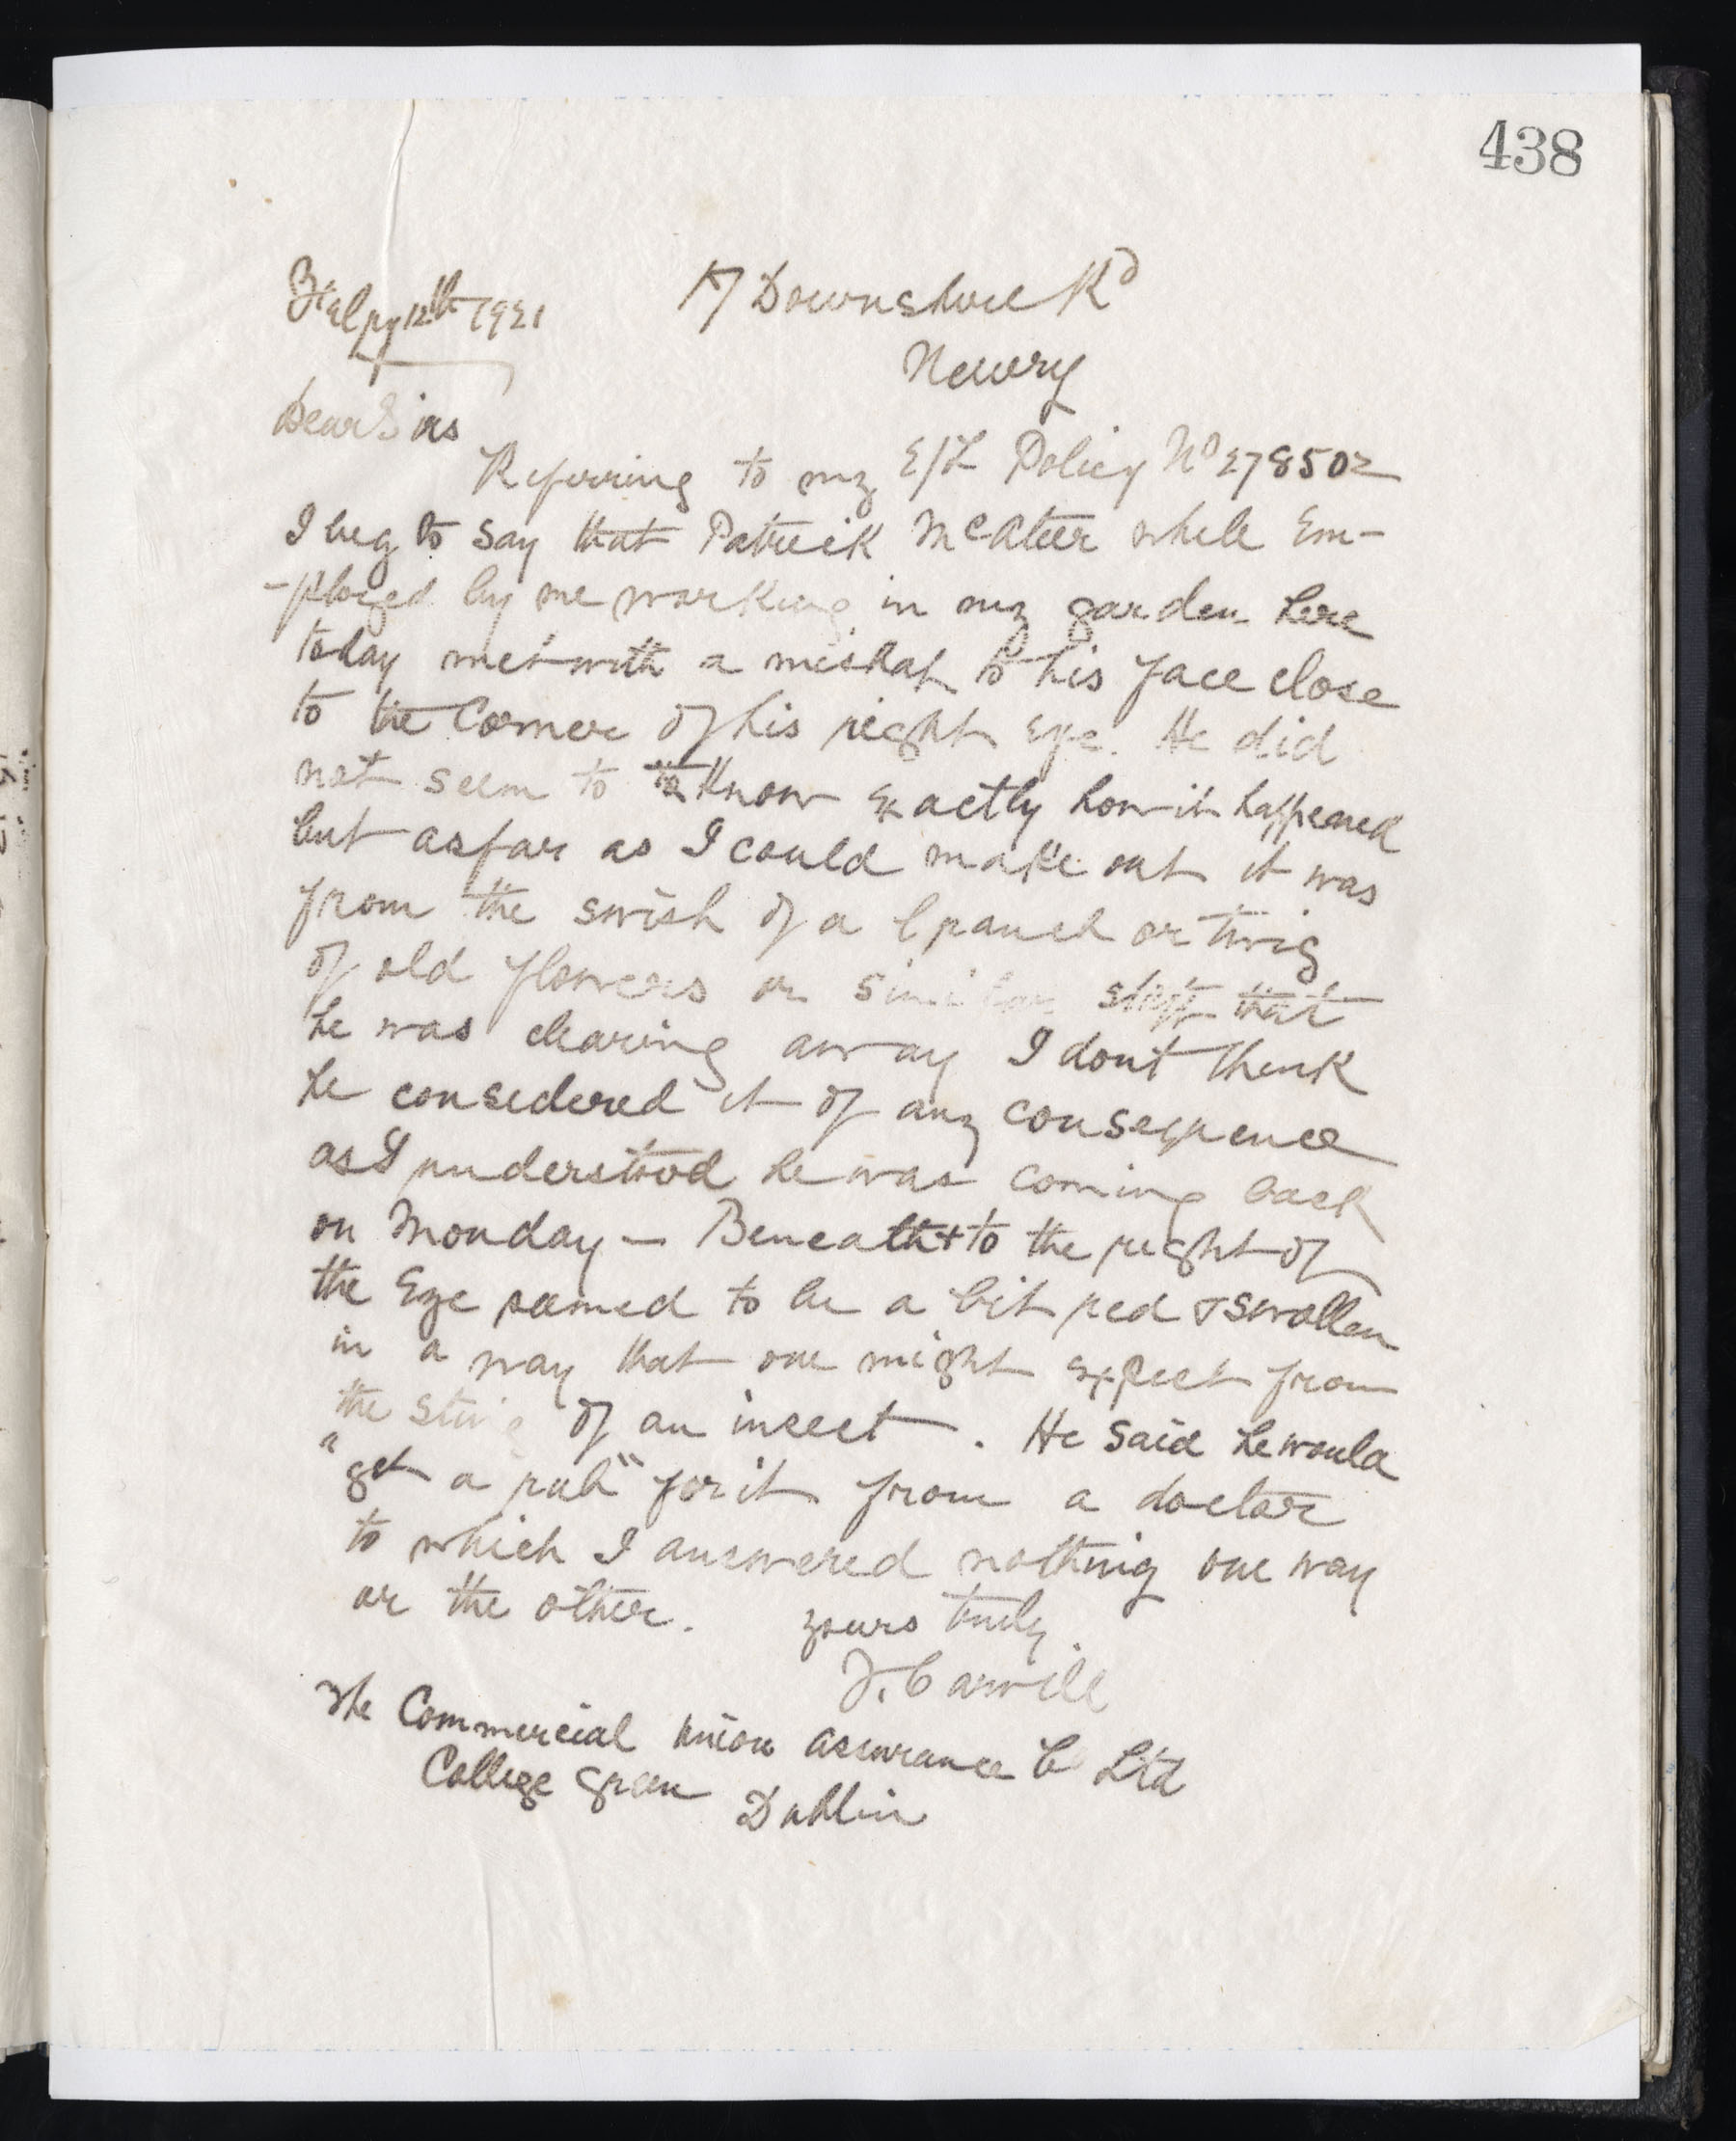 438
Feby 12th 1921
17 Downshire Rd
Newry
Dear Sirs
Referring to my E/L Policy No 278502
I beg to say that Patrick McAteer while Em-
-ployed by me working in my garden here
today met with a mishap to his face close
to the Corner of his right Eye. He did
not seem to to Know Exactly how it happened
but as far as I could make out it was
from the swish of a branch or twig
of old flowers or similar stuff that
he was clearing away I dont think
he considered it of any consequence
as I understood he was coming back
on Monday — Beneath + to the right of
the Eye seemed to be a bit red & swollen
in a way that one might expect from
the sting of an insect. He said he would
"get a rub" for it from a doctor
to which I answered nothing one way
or the other. yours truly
J. Carvill
The Commercial Union Assurance Co Ltd
College Green
Dublin